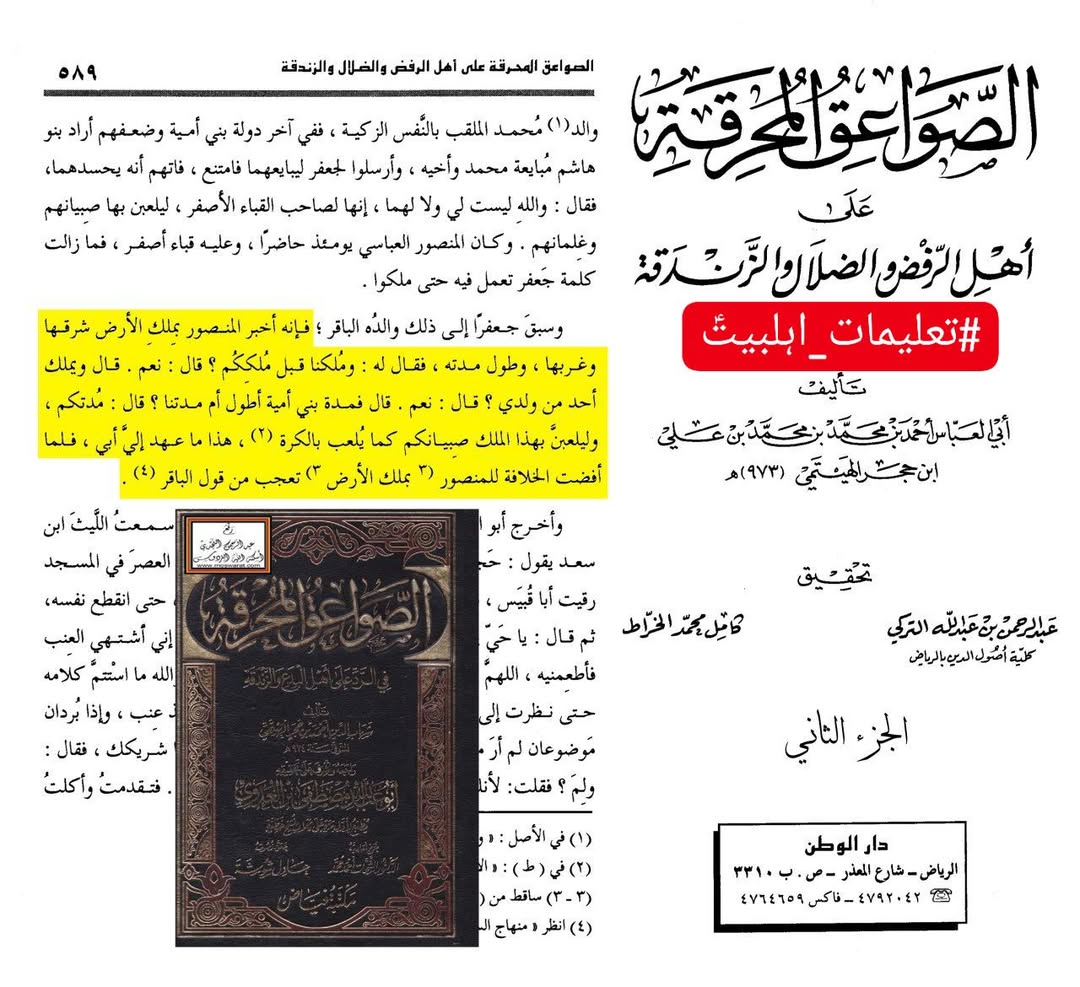 الصَّوَاعِقُ المُحْرِقَة
عَلَى
أهْلِ الرَّفْضِ وَالضَلَالِ وَالزَّنْدَقَة
#تعلیمات_اہلبیتؑ
تأليف
أبي العبّاس أحمد بن محمّد بن محمّد بن علي
ابن حجر الهيتمي (٩٧٣) هـ
تحقيق
عبدالرحمن بن عبدالله التركي
كلية أصول الدين بالرياض
كامل محمّد الخراط
الجزء الثاني
دار الوطن
الرياض ـ شارع المعذر ـ ص . ب ٣٣١٠
٤٧٩٢٠٤٢ ـ فاكس ٤٧٦٤٦٥٩
الصواعق المحرقة على أهل الرفض والضلال والزندقة
٥٨٩
والد(١) مُحمد الملقب بالنَّفس الزكية ، ففي آخر دولة بني أمية وضعفهم أراد بنو
هاشم مُبايعة محمد وأخيه ، وأرسلوا لجعفر ليبايعهما فامتنع ، فاتهم أنه يحسدهما،
فقال : واللهِ ليست لي ولا لهما ، إنها لصاحب القباء الأصفر ، ليلعبن بها صِبيانهم
وغِلمانهم . وكان المنصور العباسي يومئذ حاضرًا ، وعليه قباء أصفر ، فما زالت
كلمة جَعفر تعمل فيه حتى ملكوا .
وسبقَ جعفرًا إلى ذلك والدُه الباقر ؛ فإنه أخبر المنصور بِملكِ الأرض شرقها
وغربها ، وطول مدته ، فقال له : ومُلكنا قبل مُلككُم ؟ قال : نعم . قال ويملك
أحد من ولدي ؟ قال : نعم . قال فمدة بني أمية أطول أم مدتنا ؟ قال : مُدتكم ،
وليلعبنَّ بهذا الملك صِبيانكم كما يُلعب بالكرة (٢) ، هذا ما عهد إليَّ أبي ، فلما
أفضت الخلافة للمنصور (٣ بملك الأرض ٣) تعجب من قول الباقر (٤) .
وأخرج أبو ا
سمعتُ اللَّيثَ ابن
سعد يقول : حَج
العصرَ في المسجد
رقيت أبا قُبَيس ،
، حتى انقطع نفسه،
ثم قال : يا حَيّ
إني أشتهي العِنب
فأطعِمنيه ، اللهمَّ
الله ما اسْتتمَّ كلامه
حتى نظرت إلى
ذ عِنب ، وإذا بُردان
مَوضوعان لم أرَ م
ا شريكك ، فقال :
ولِمَ ؟ فقلت: لأنك
. فتقدمتُ وأكلتُ
(١) في الأصل : « و
(٢) في ( ط ) : « الا
(٣ - ٣) ساقط من (
(٤) انظر « منهاج الس
www.moswarat.com
الصَّوَاعِقُ المُحْرِقَة
في الرد على أهل البدع والزندقة
تأليف
مكتبة فياض